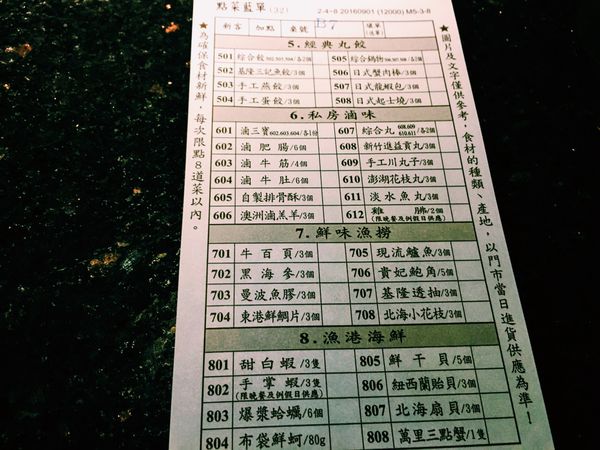 點菜藍單(32) 2.4-8 20160901 (12000) M5-3-8
新客 加點 桌號 B7 填單
★為確保食材新鮮，每次限點8道菜以內。
★圖片及文字僅供參考，食材的種類、產地，以門市當日進貨供應為準！
5.經典丸餃
501 綜合餃502.503.504/各2個 505 綜合鍋物506.507.508/各2個
502 基隆三記魚餃/3個 506 日式蟹肉棒/3個
503 手工燕餃/3個 507 日式龍蝦包/3個
504 手工蛋餃/3個 508 日式起士燒/3個
6.私房滷味
601 滷三寶602.603.604/各1份 607 綜合丸608.609 610.611/各2個
602 滷肥腸/6個 608 新竹進益貢丸/3個
603 滷牛筋/4個 609 手工川丸子/3個
604 滷牛肚/6個 610 澎湖花枝丸/3個
605 自製排骨酥/3個 611 淡水魚丸/3個
606 澳洲滷羔羊/3個 612 雞胇/2個
(限晚餐及例假日供應)
7.鮮味漁撈
701 牛百頁/3個 705 現流鱸魚/3個
702 黑海參/3個 706 貴妃鮑角/5個
703 曼波魚膠/3個 707 基隆透抽/3個
704 東港鮮鯛片/3個 708 北海小花枝/3個
8.漁港海鮮
801 甜白蝦/3隻 805 鮮干貝/5個
802 手掌蝦/3隻 806 紐西蘭貽貝/3個
(限晚餐及例假日供應)
803 爆漿蛤蠣/6個 807 北海扇貝/3個
804 布袋鮮蚵/80g 808 萬里三點蟹/1隻